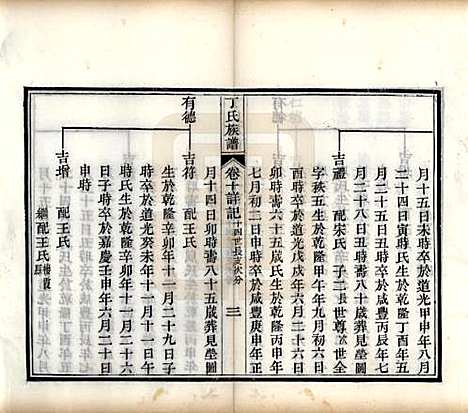 月十五日未時卒於道光甲申年八月
二十四日寅時氏生於乾隆丁酉年五
月二十八日戌時卒於咸豐丙辰年七
有德
吉禮 配宋氏 子二長世尊次世全
字秡五生於乾隆甲午年九月初六日
酉時卒於道光戊戌年六月二十六日
卯時壽六十五歲氏生於乾隆丙申年
七月初二日申時卒於咸豐庚申年正
丁氏族譜
卷十詳記
十四世長支次分
三
月十四日卯時壽八十五歲葬見塋圖
有德
吉符 配王氏
生於乾隆辛卯年十一月二十九日子
時卒於道光癸未年十一月十一日午
時氏生於乾隆辛卯年六月二十日
申時卒於嘉慶壬申年六月二十日
申時
吉增 配王氏
繼配王氏